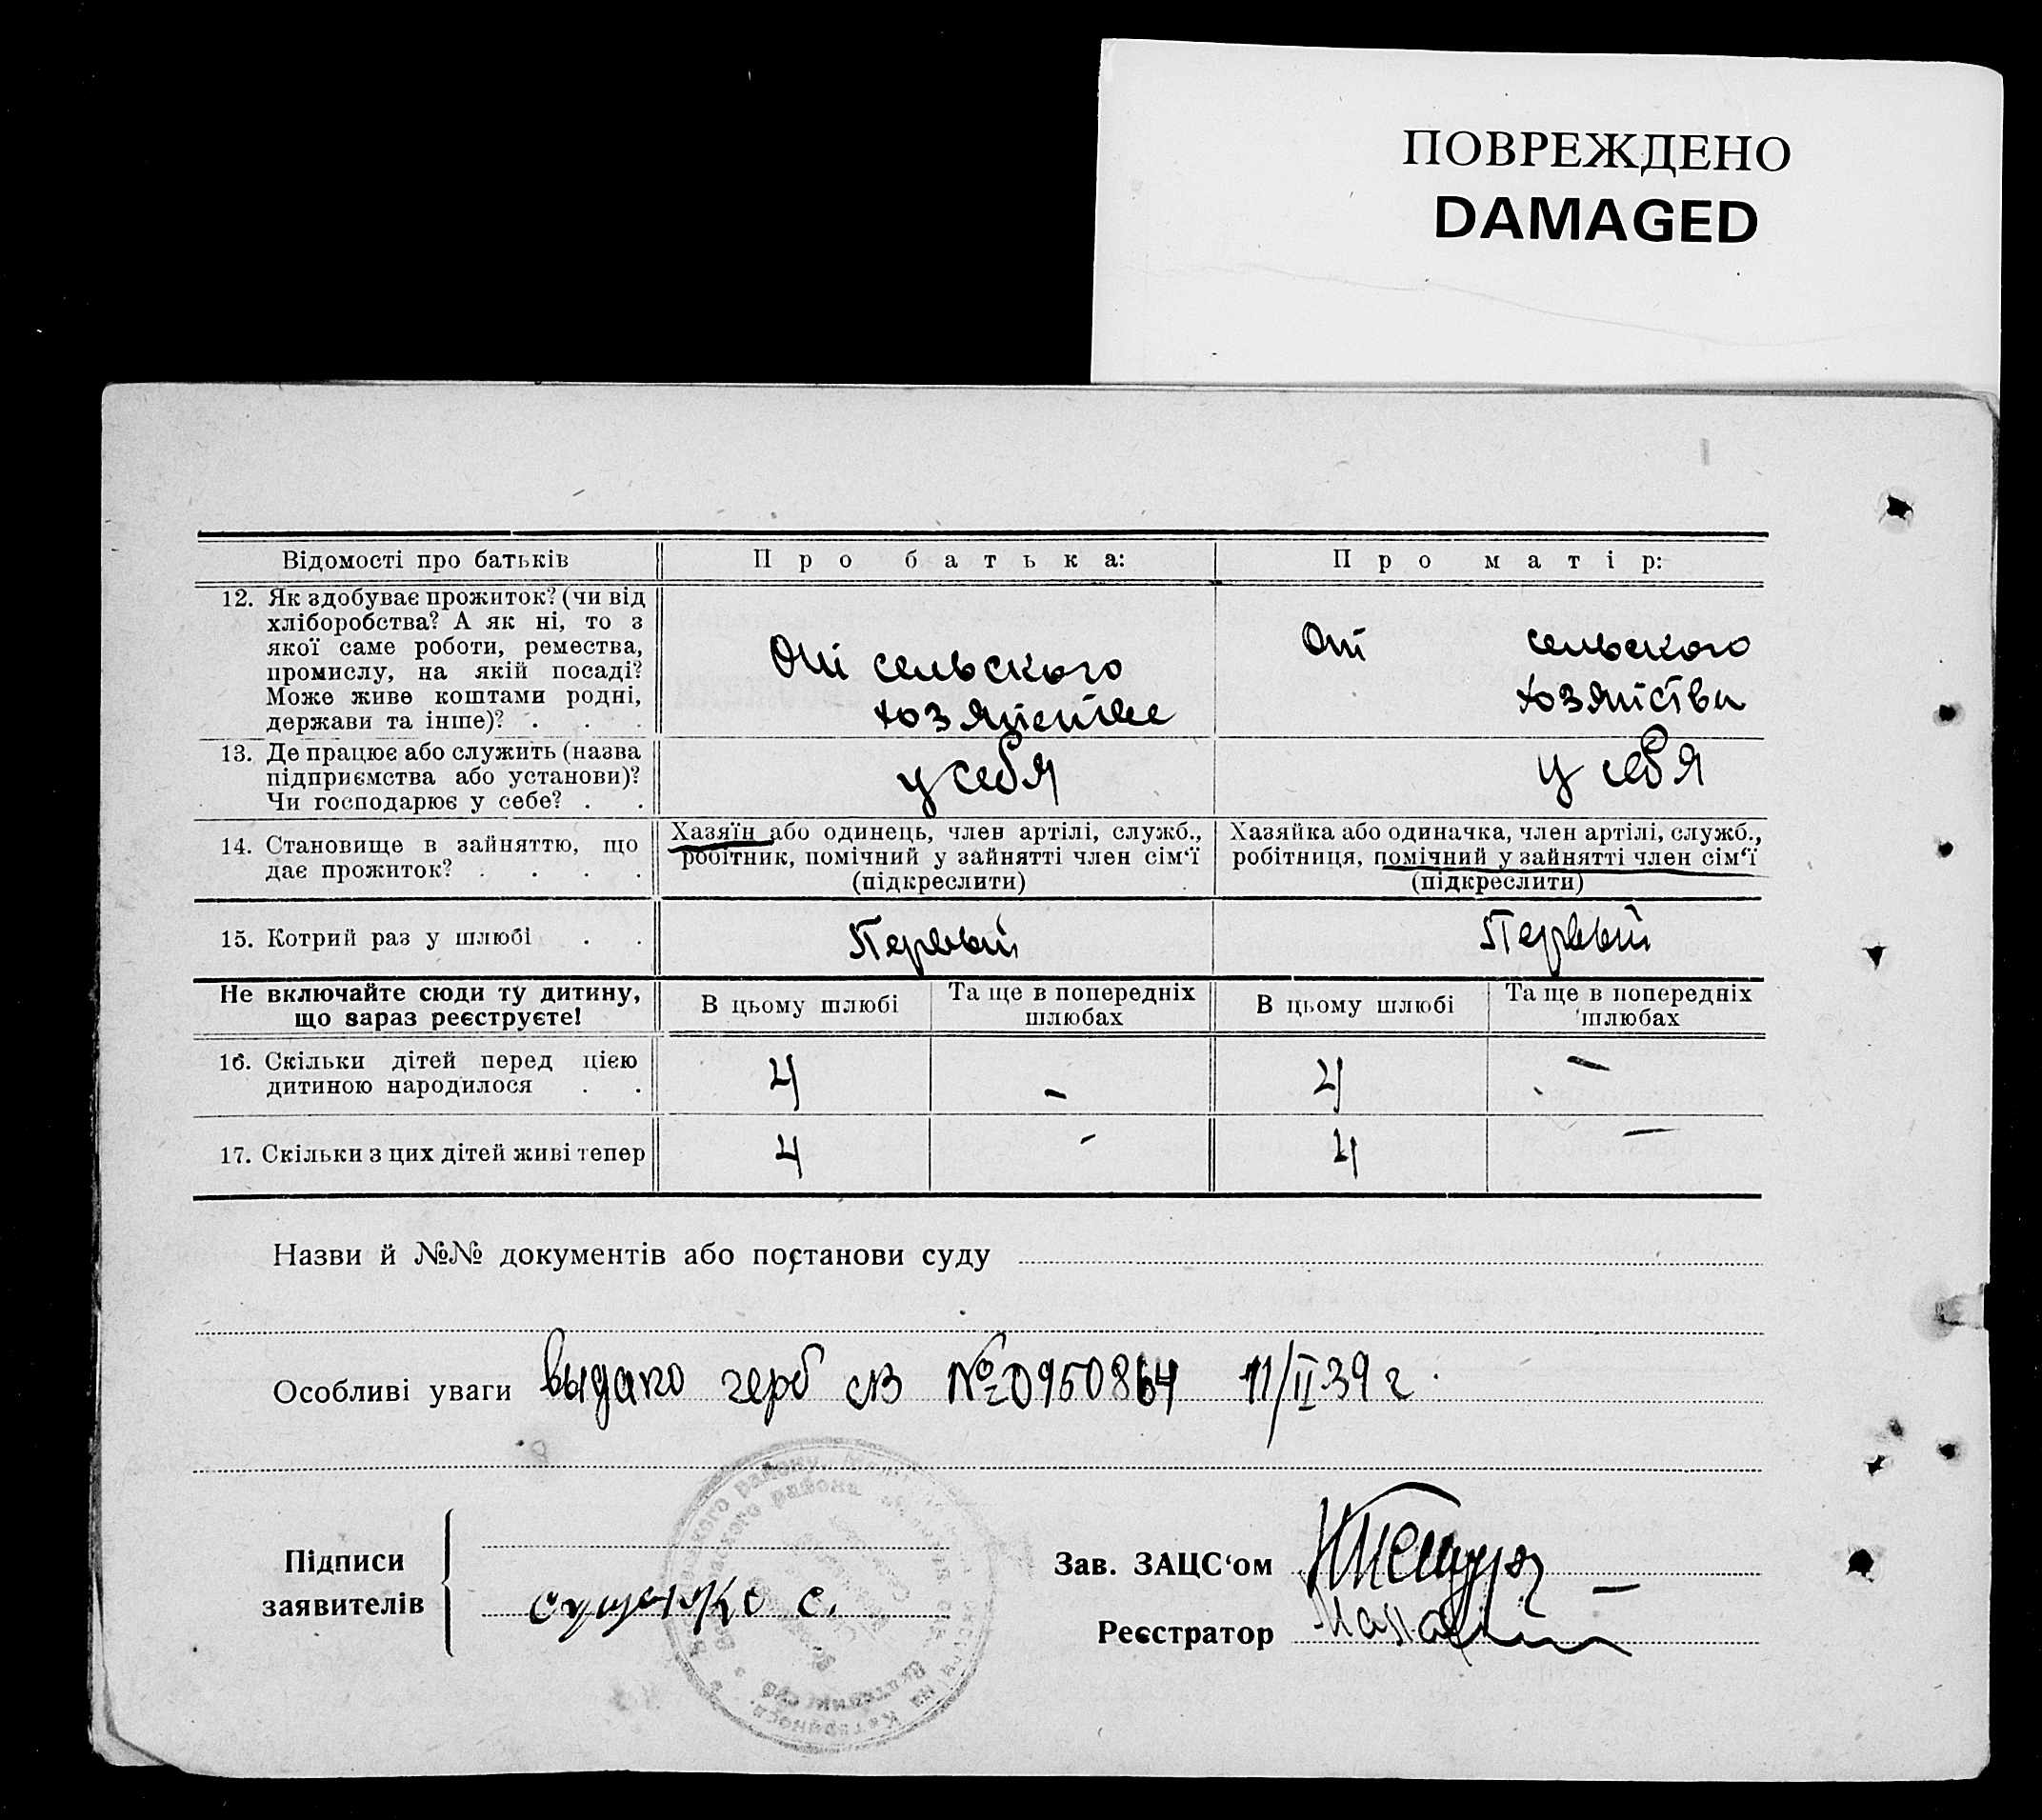 ПОВРЕЖДЕНО
DAMAGED
Відомості про батьків
Про батька:
Про матір:
12. Як здобуває прожиток? (чи від
хліборобства? А як ні, то з
якої саме роботи, ремества,
промислу, на якій посаді?
Може живе коштами родні,
держави та інше)? . . .
От сельского
хозяйства
От сельского
хозяйства
13. Де працює або служить (назва
підприємства або установи)?
Чи господарює у себе? . .
у себя
у себя
14. Становище в зайняттю, що
дає прожиток? . . . .
Хазяїн або одинець, член артілі, служб.,
робітник, помічний у зайнятті член сім‘ї
(підкреслити)
Хазяйка або одиначка, член артілі, служб.,
робітниця, помічний у зайнятті член сім‘ї
(підкреслити)
15. Котрий раз у шлюбі . .
Первый
Первый
Не включайте сюди ту дитину,
що зараз реєструєте!
В цьому шлюбі
Та ще в попередніх
шлюбах
В цьому шлюбі
Та ще в попередніх
шлюбах
16. Скільки дітей перед цією
дитиною народилося . .
4 – 4 –
17. Скільки з цих дітей живі тепер
4 – 4 –
Назви й №№ документів або постанови суду
Особливі уваги выдано герб св №0950864 11/II 39 г.
Підписи
заявителів
с.
Зав. ЗАЦС‘ом
Реєстратор